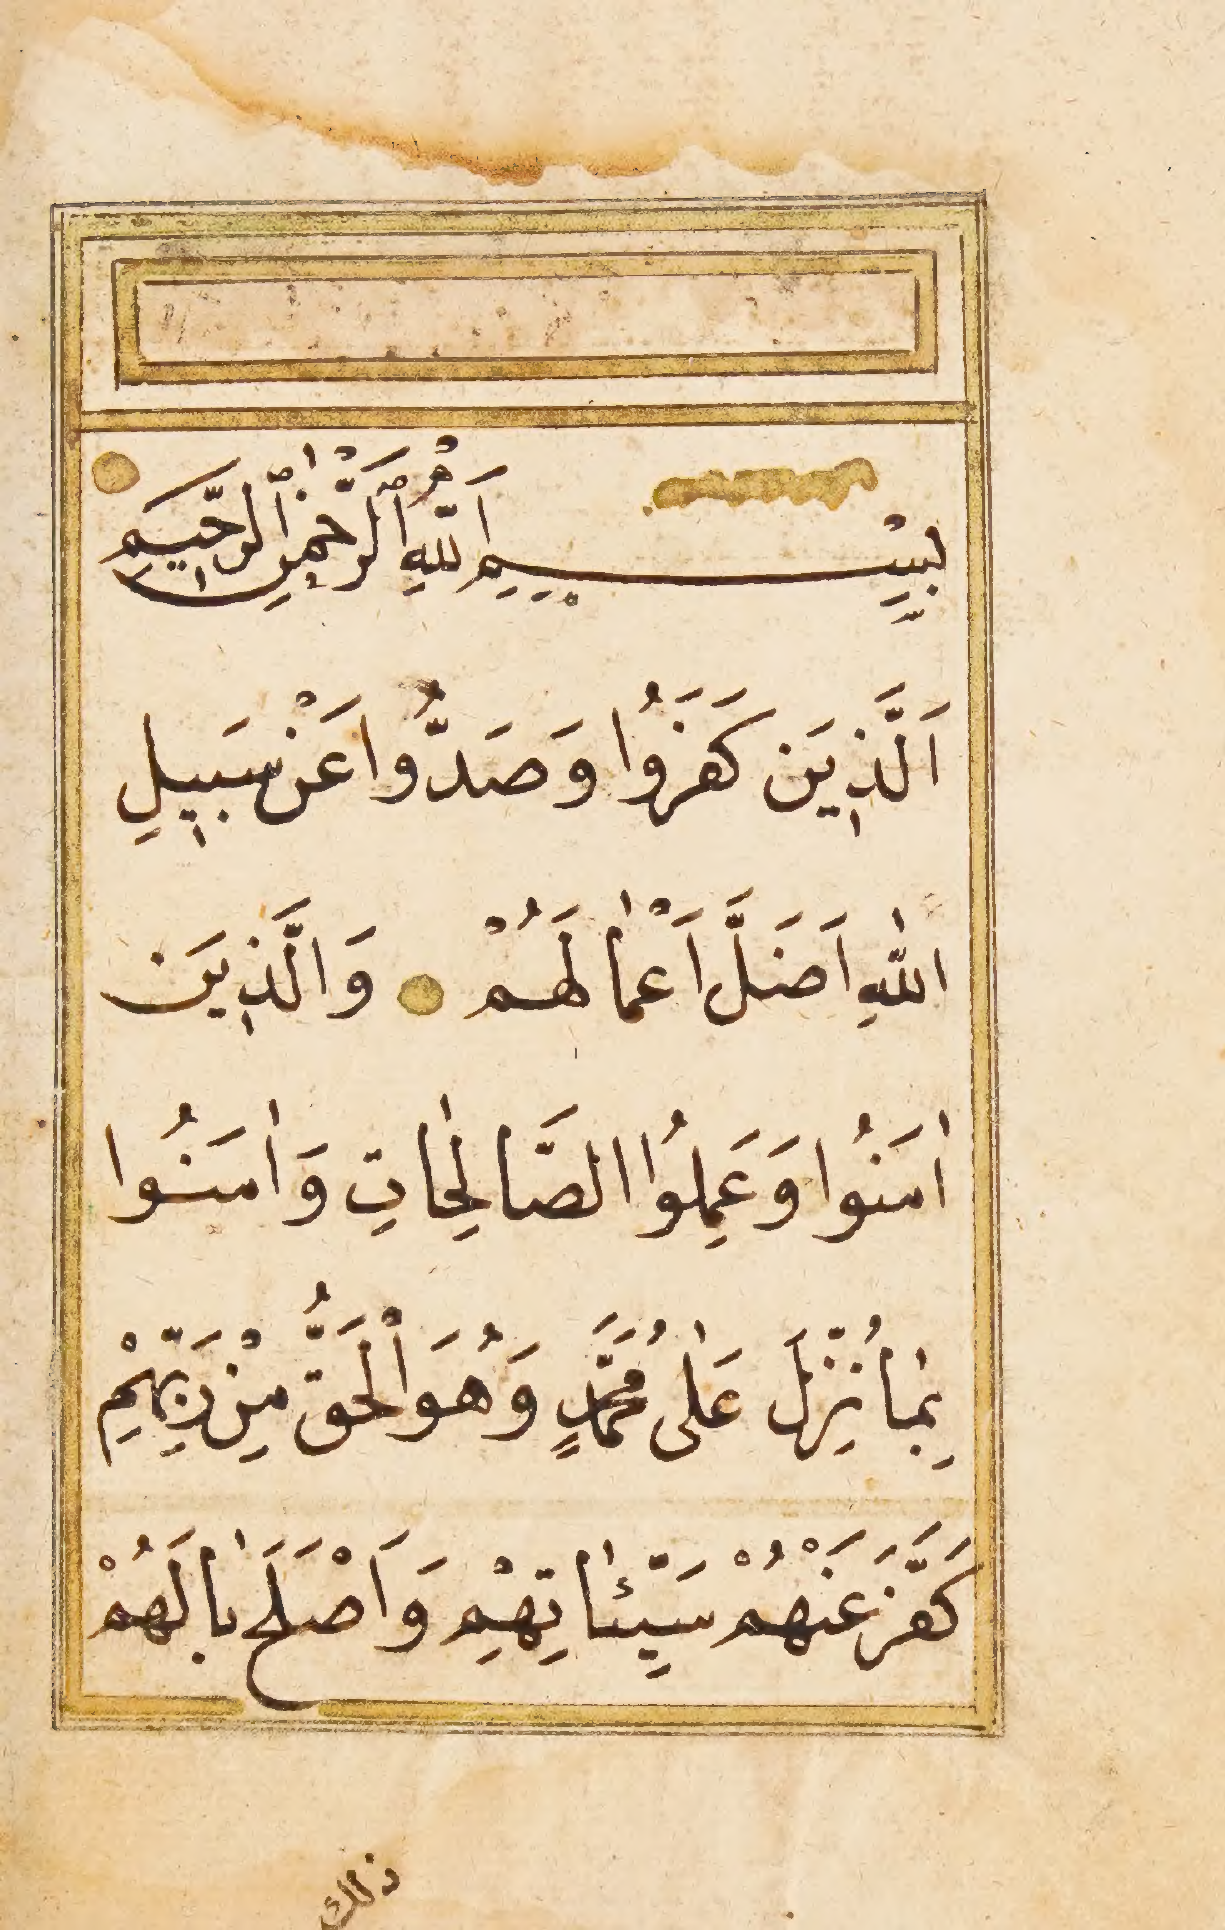 بِسْــــمِ اللّٰهِ الرَّحْمٰنِ الرَّحٖيمِ
اَلَّذٖينَ كَفَرُوا وَصَدُّوا عَنْ سَبٖيلِ
اللّٰهِ اَضَلَّ اَعْمَالَهُمْ وَالَّذٖينَ
اٰمَنُوا وَعَمِلُوا الصَّالِحَاتِ وَاٰمَنُوا
بِمَا نُزِّلَ عَلٰى مُحَمَّدٍ وَهُوَ الْحَقُّ مِنْ رَبِّهِمْ
كَفَّرَ عَنْهُمْ سَيِّئٰاتِهِمْ وَاَصْلَحَ بَالَهُمْ
ذلك